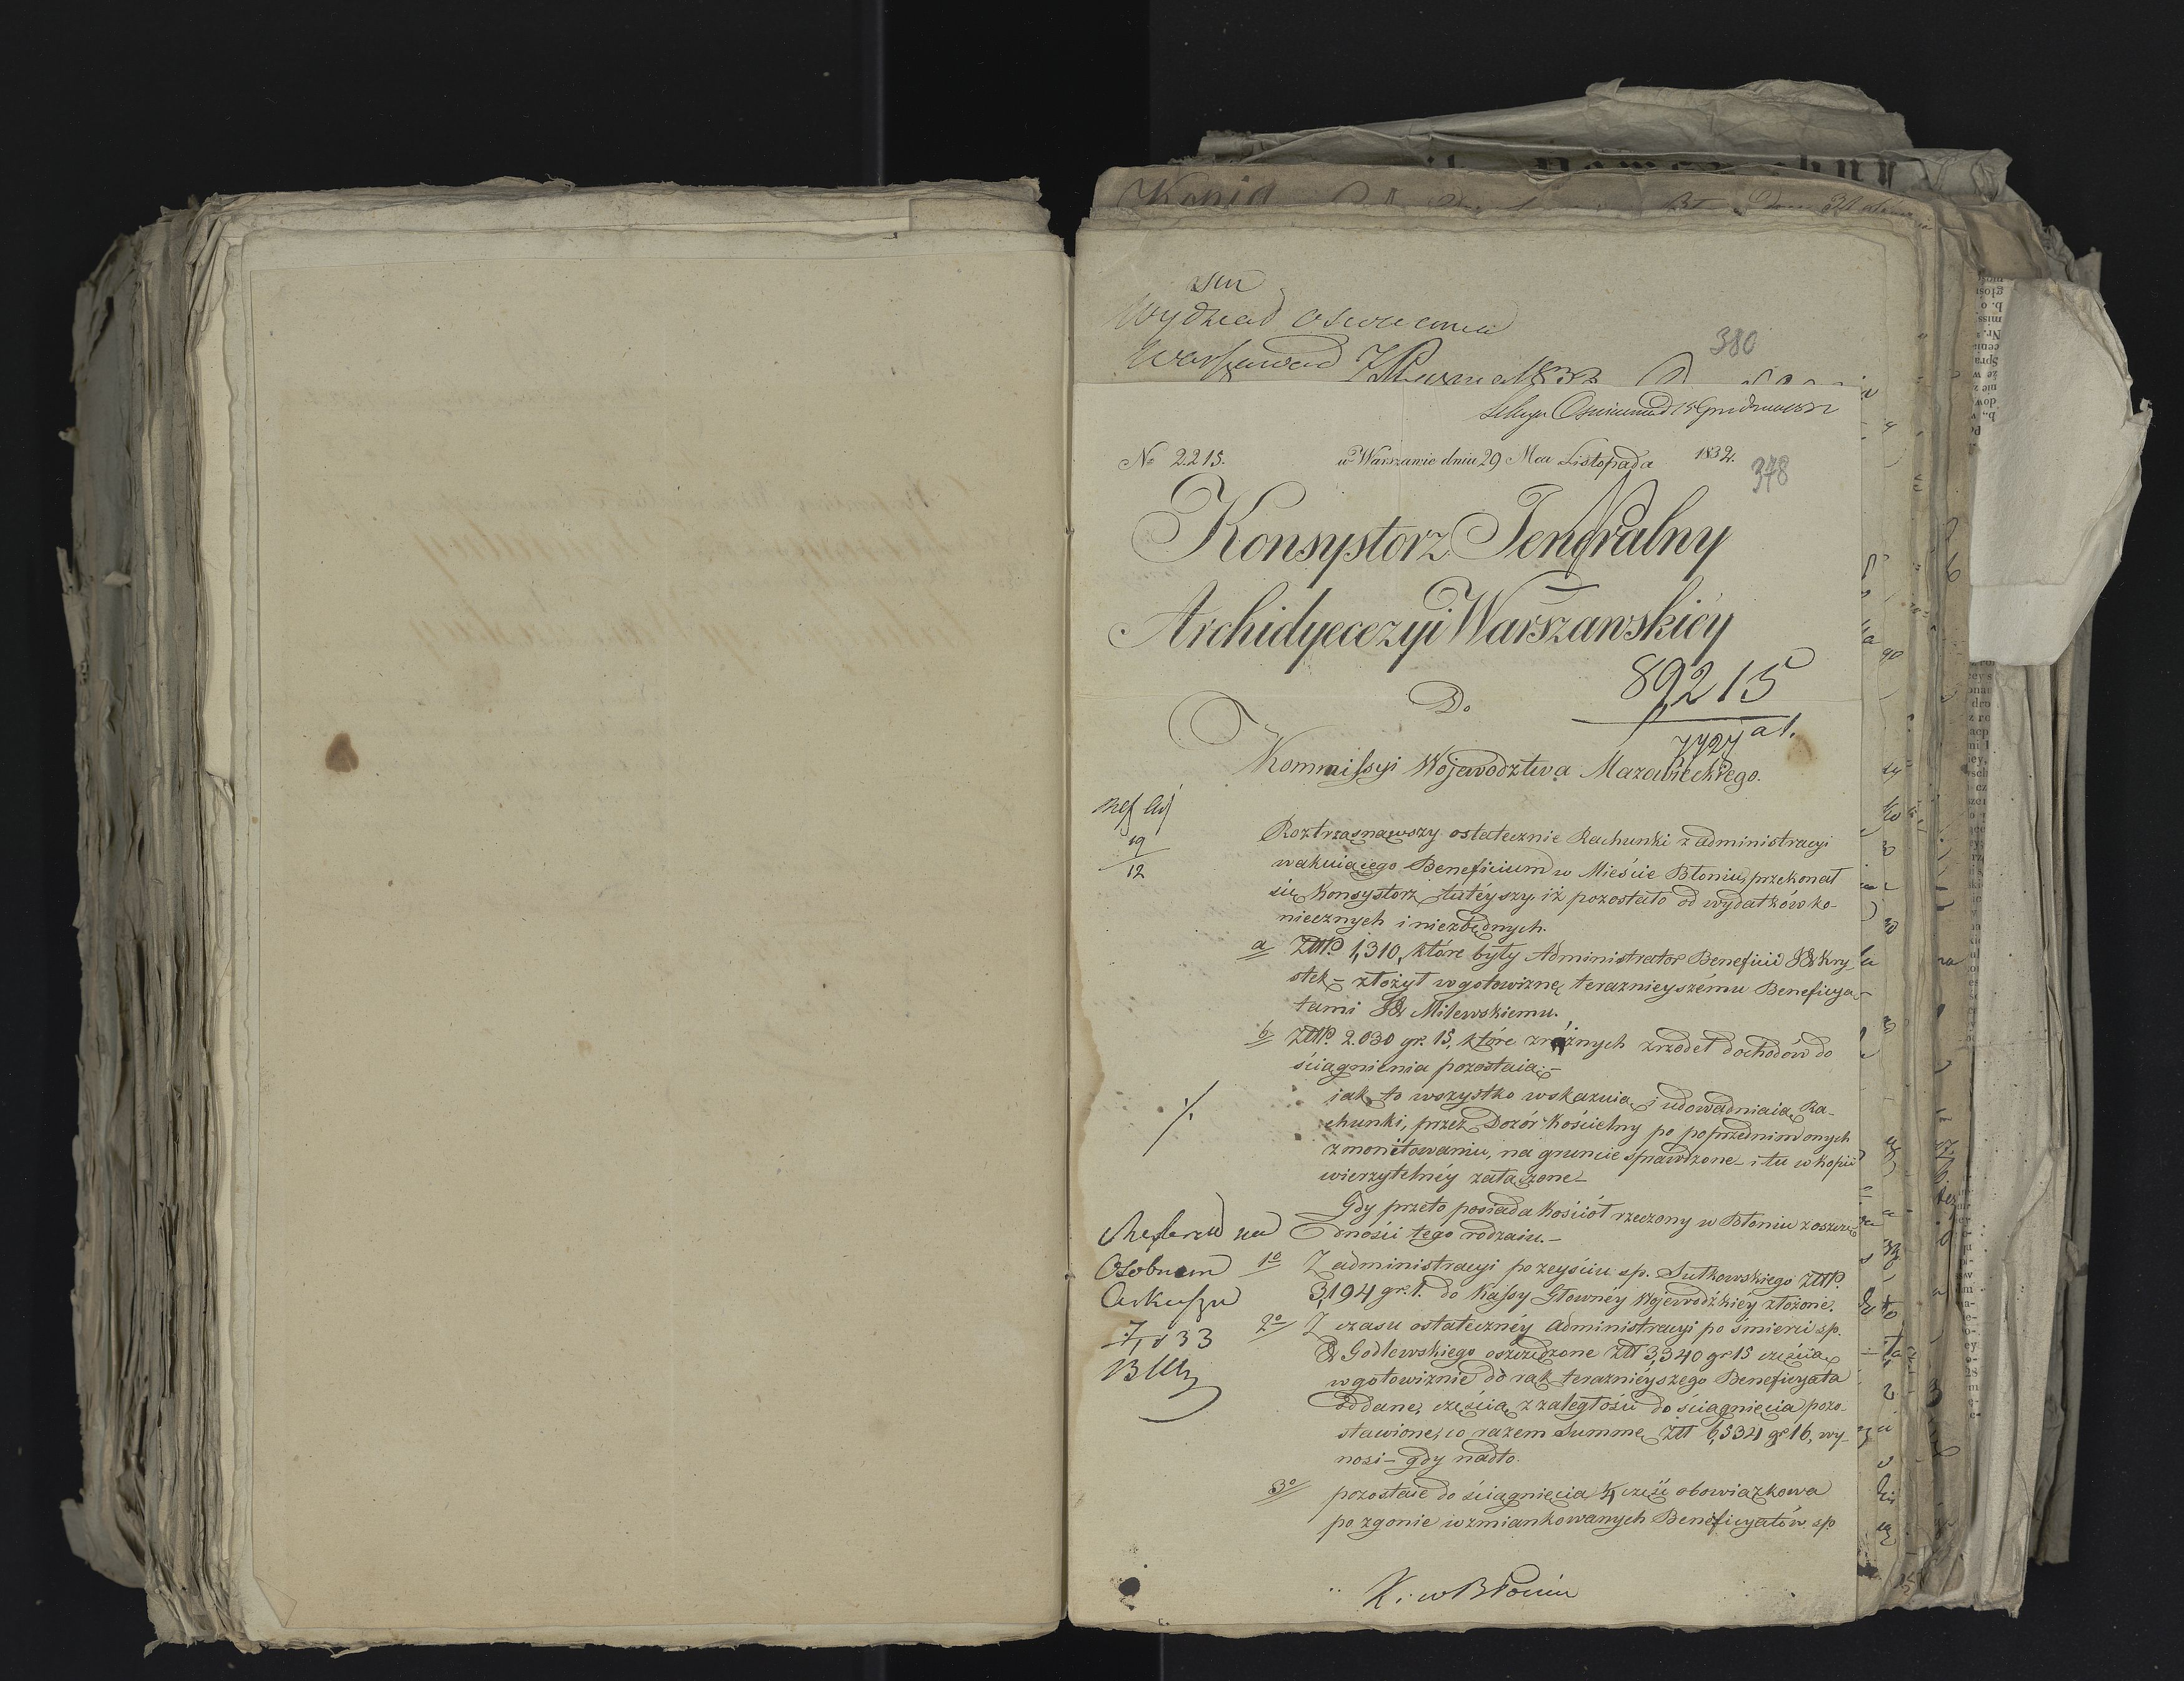 Wydział Oswiecenia
380
Sekcya Oświecenia d 15 Grudnia 1832
No 2215. w Warszawie dnia 29 Mca Listopada 1832.
378
Konsystorz Jeneralny
Archidyecezyi Warszawskiéy
89,215
Do
7727 a 1.
Kommissyi Województwa Mazowieckiego.
Ref Adj
19
12
Roztrząsnąwszy ostatecznie Rachunki z administracyi
wakuiącego Beneficium w Mieście Błoniu, przekonał
się Konsystorz tutéyszy, iż pozostało od wydatków ko-
niecznych i niezbędnych.
a Złłp. 1,310, które były Administrator Beneficii X Kry
stek – złożył w gotowiznę teraznieyszému Beneficya-
tami X Milewskiemu.
b Złłp. 2.030 gr. 15, które z różnych zrzodeł dochodów do
ściągnienia pozostaią; –
iak to wszystko wskazuią i udowadniaią Ra-
chunki, przez Dozór Kościelny po poprzedniem onych
zmonitowaniu, na gruncie sprawdzone – i tu w kopii
wierzytelnéy załączone –
Gdy przeto posiada Kościół rzeczony w Błoniu z oszczę
dności tego rodzaiu. –
1o Z administracyi po zeyściu sp. Sutkowskiego złłp.
3,194 gr. 1. do Kassy Głównéy Wojewódzkiéy złożone.
2o Z czasu ostateczney administracyi po śmierci sp.
X Godlewskiego oszczędzone złł 3,340 gr 15 częścią
w gotowiznie do rąk teraznieyszego Beneficyata
oddane, częścią z zaległości do ściągnięcia pozo-
stawione, co razem Summę złł 6,534 gr 16, wy-
nosi – gdy nadto.
3o pozostaie do ściągnięcia ¼ część obowiązkowa
po zgonie wzmiankowanych Beneficyatów sp
Referat na
Osobnem
Arkuszu
7/1 833
K. w Błoniu